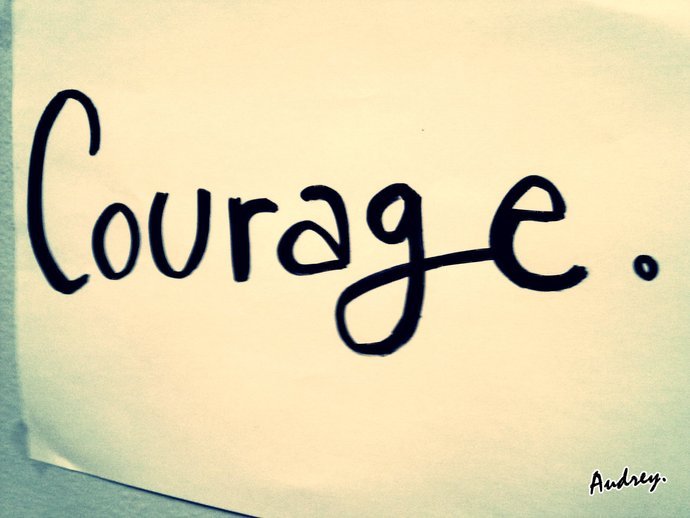 Courage.
Audrey.